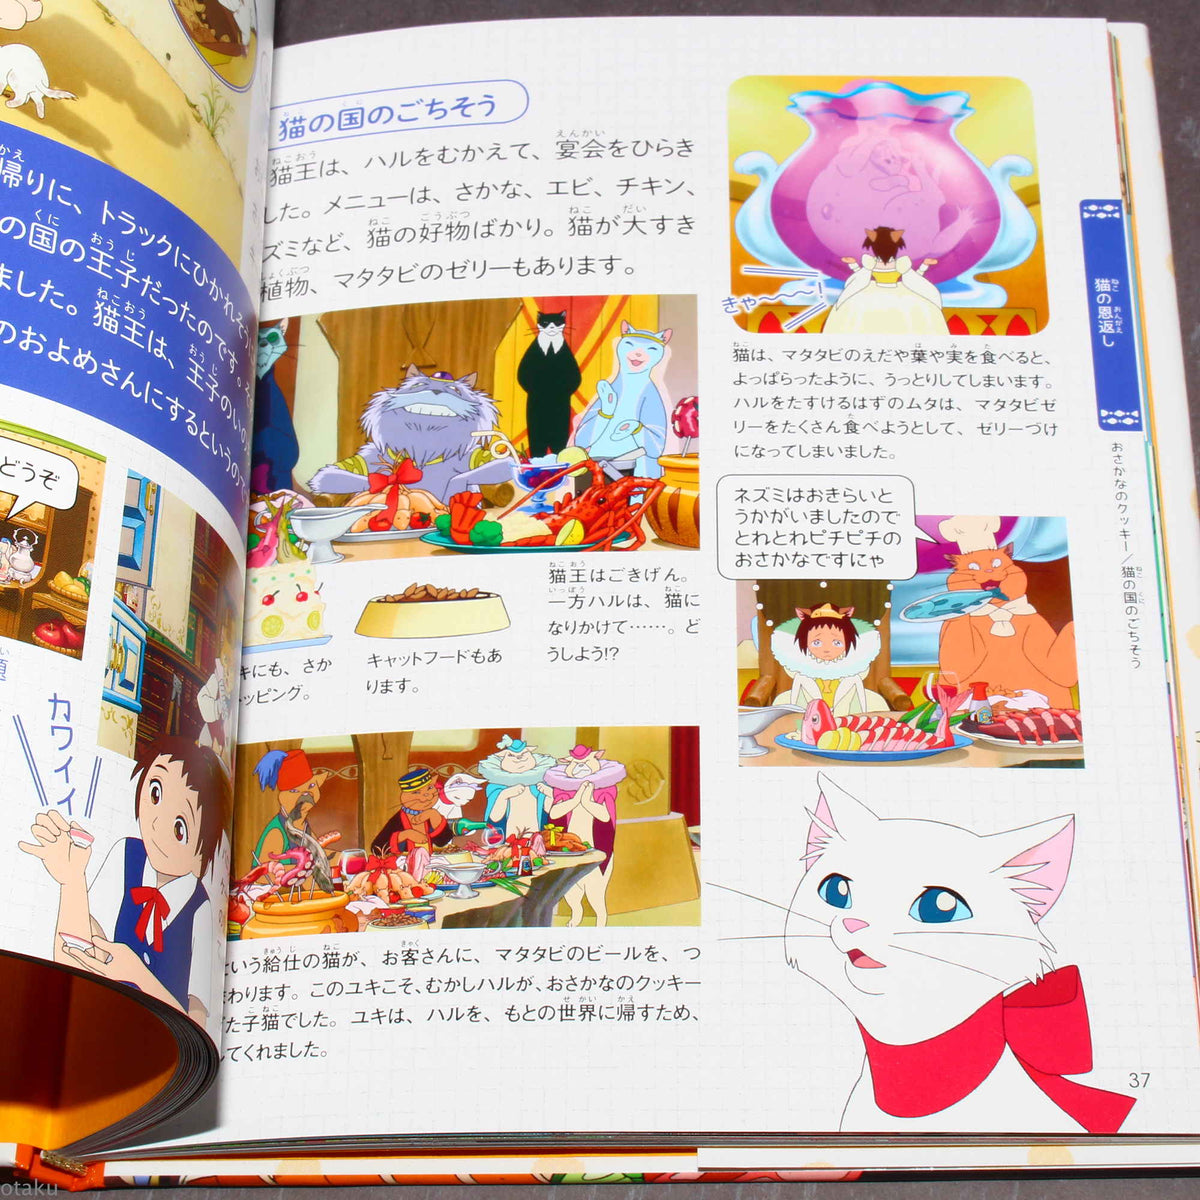 帰りに、トラックにひかれそう
の国の王子だったのです。そ
ました。猫王は、王子のいの
のおよめさんにするというので
どうぞ
カワイイ
猫の国のごちそう
猫王は、ハルをむかえて、宴会をひらき
した。メニューは、さかな、エビ、チキン、
ズミなど、猫の好物ばかり。猫が大すき
植物、マタタビのゼリーもあります。
キにも、さか
ッピング。
キャットフードもあ
ります。
猫王はごきげん。
一方ハルは、猫に
なりかけて……。ど
うしよう!?
いう給仕の猫が、お客さんに、マタタビのビールを、つ
まわります。このユキこそ、むかしハルが、おさかなのクッキー
た子猫でした。ユキは、ハルを、もとの世界に帰すため、
してくれました。
きゃ〜〜〜!
猫は、マタタビのえだや葉や実を食べると、
よっぱらったように、うっとりしてしまいます。
ハルをたすけるはずのムタは、マタタビゼ
リーをたくさん食べようとして、ゼリーづけ
になってしまいました。
ネズミはおきらいと
うかがいましたので
とれとれピチピチの
おさかなですにゃ
猫の恩返し
おさかなのクッキー/猫の国のごちそう
37
otaku